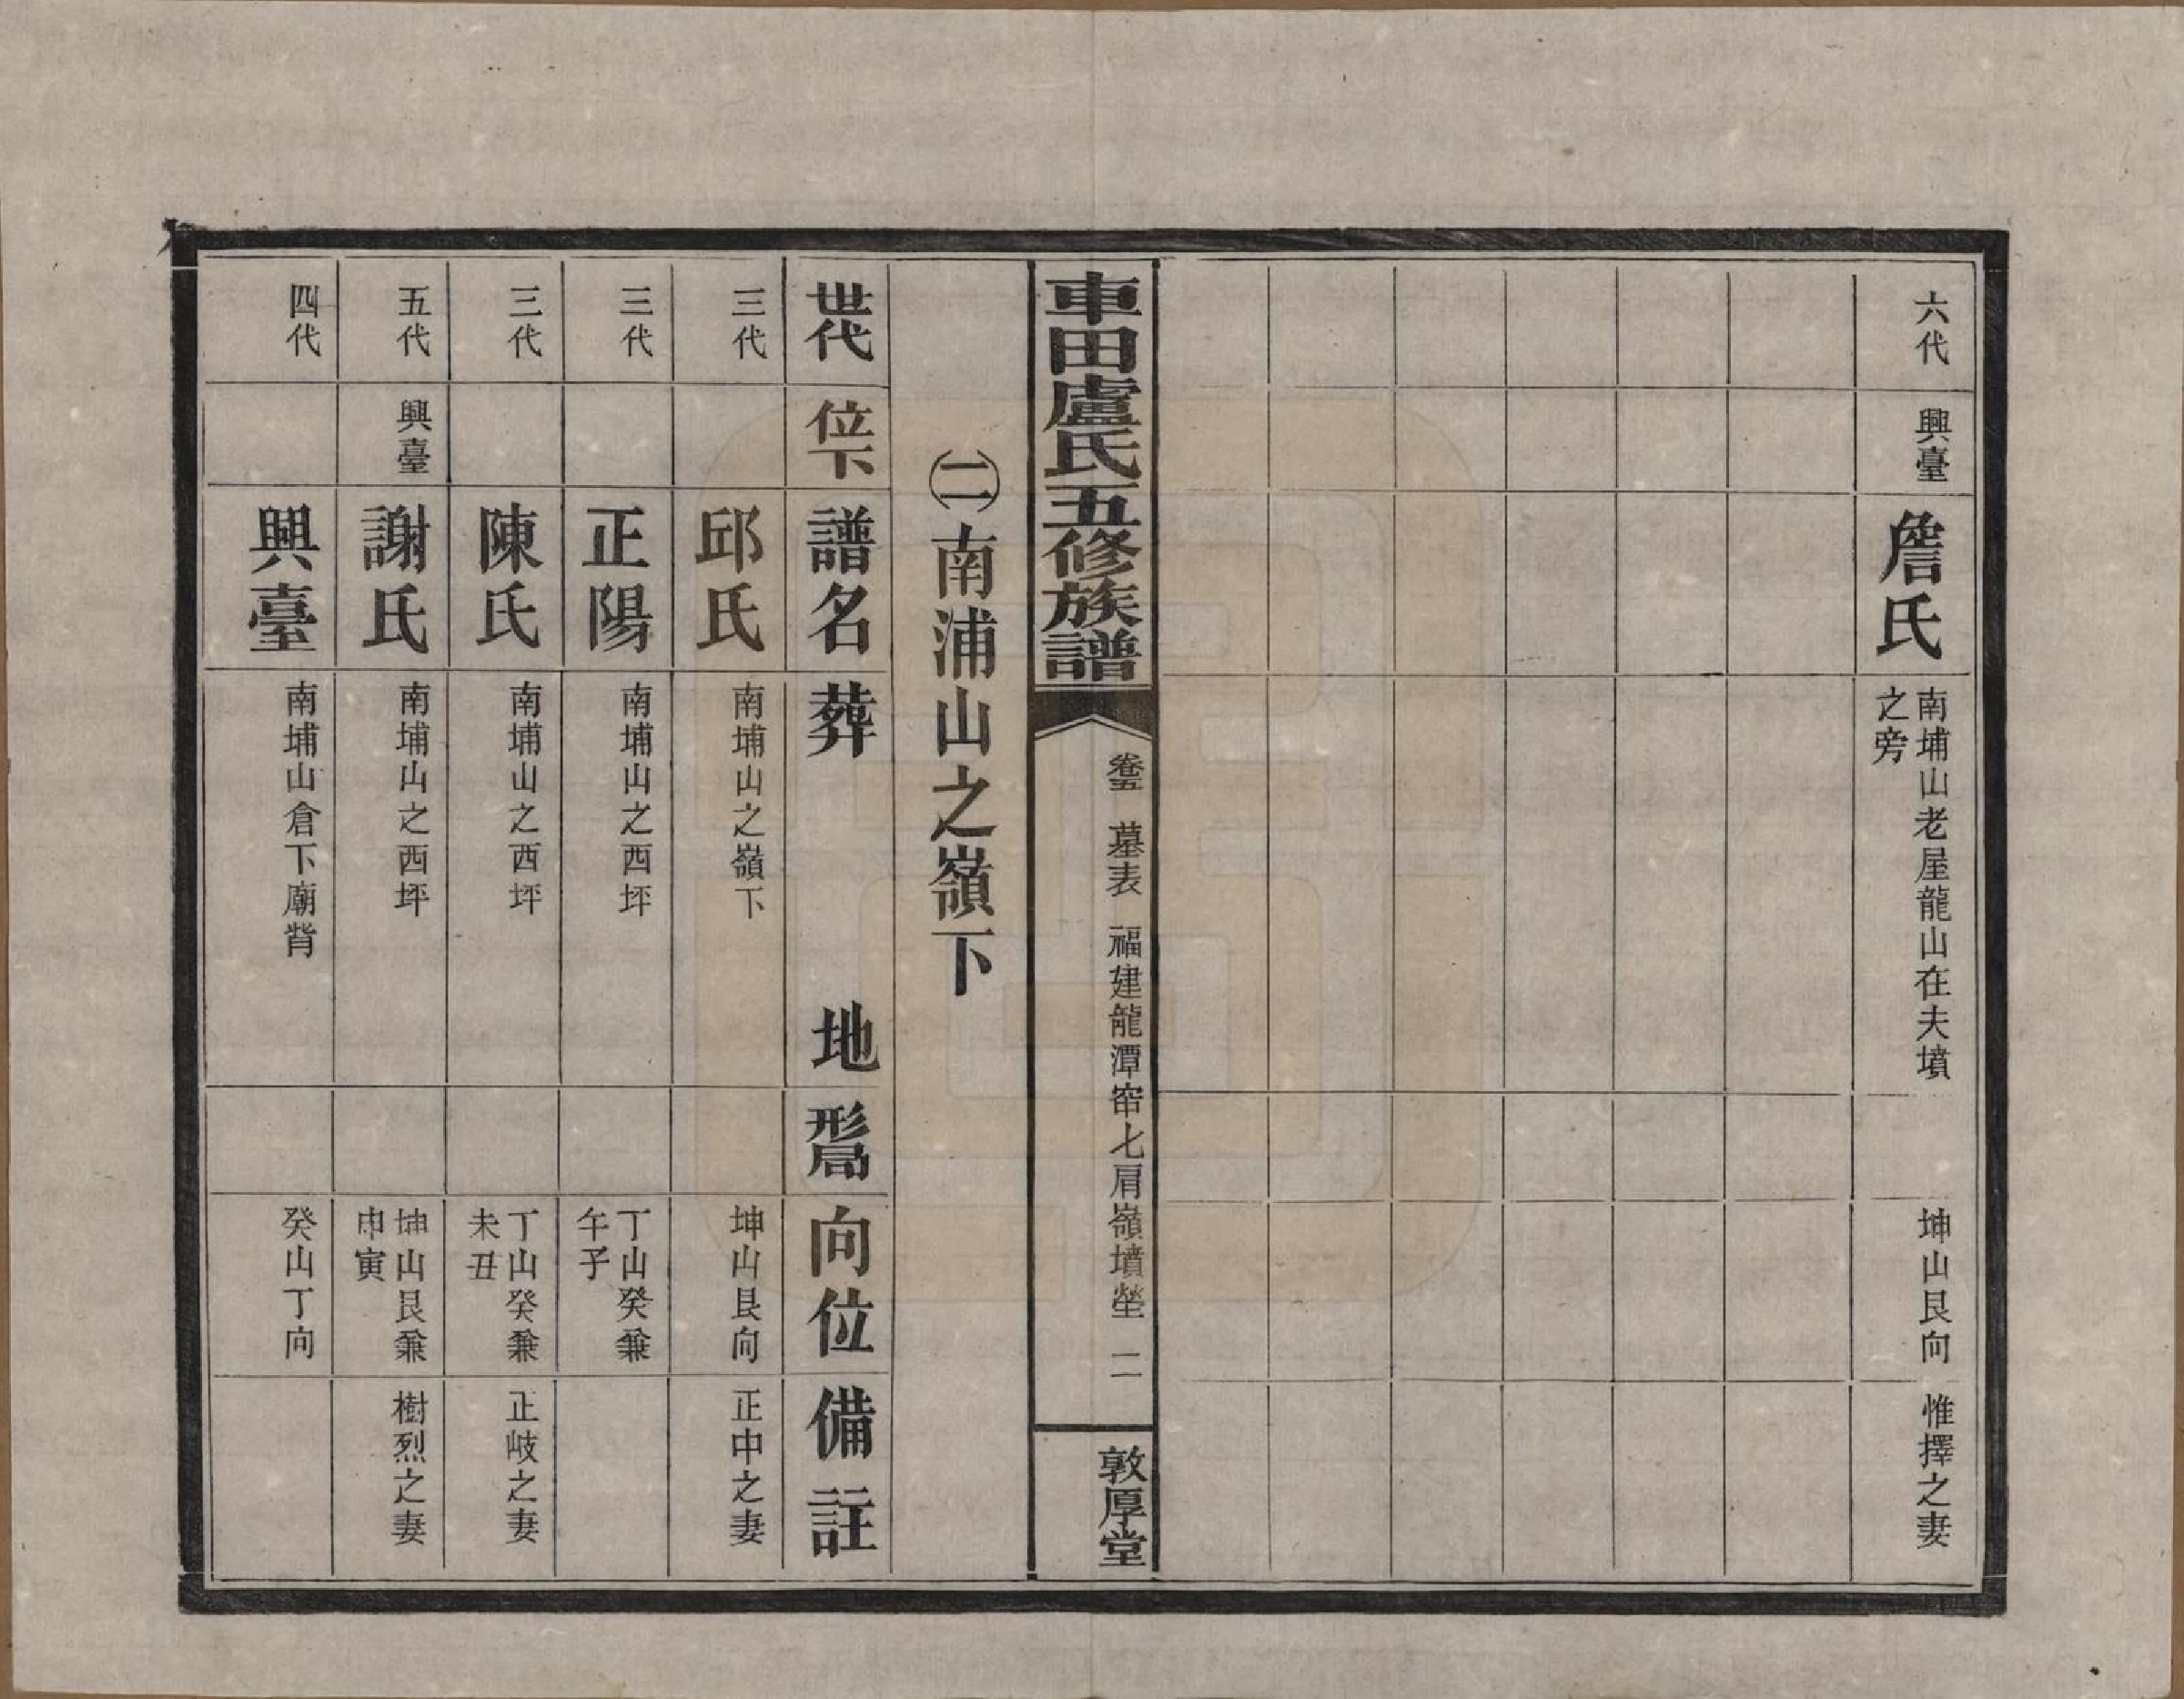 六代
興臺
詹氏
南埔山老屋龍山在夫墳
之旁
坤山艮向
惟擇之妻
車田盧氏五修族譜
卷五 墓表 福建龍潭窂七肩嶺墳塋 二
敦厚堂
㈡南浦山之嶺下
世代
位下
譜名
葬地
形局
向位
備註
三代
邱氏
南埔山之嶺下
坤山艮向
正中之妻
三代
正陽
南埔山之西坪
丁山癸兼
午子
三代
陳氏
南埔山之西坪
丁山癸兼
未丑
正岐之妻
五代
興臺
謝氏
南埔山之西坪
坤山艮兼
申寅
樹烈之妻
四代
興臺
南埔山倉下廟背
癸山丁向